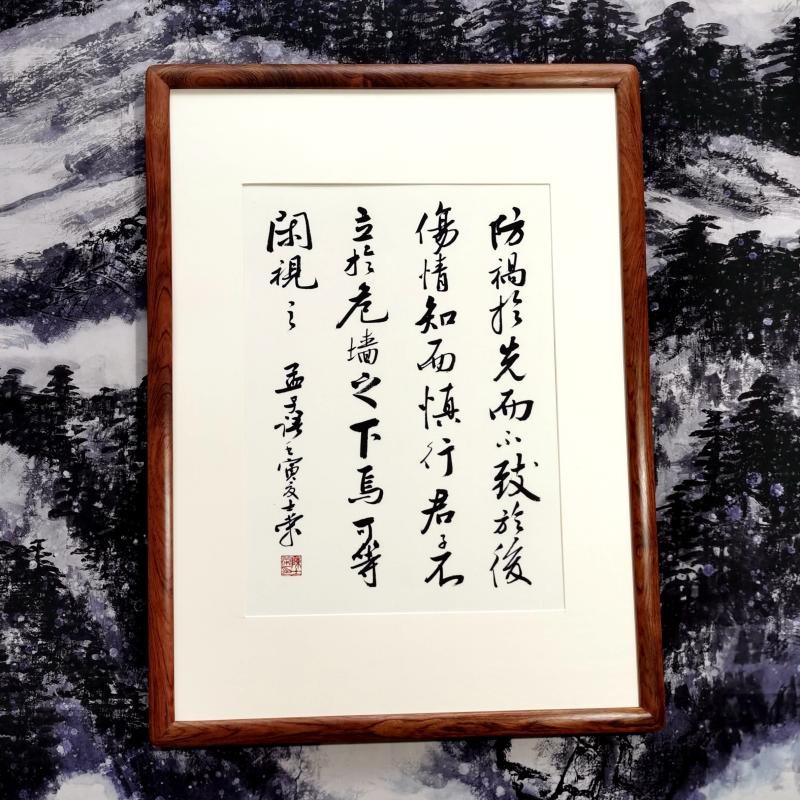 防禍於先而不致於後
傷情知而慎行君子不
立於危墙之下焉可等
閑視之
孟子語壬寅夏士榮